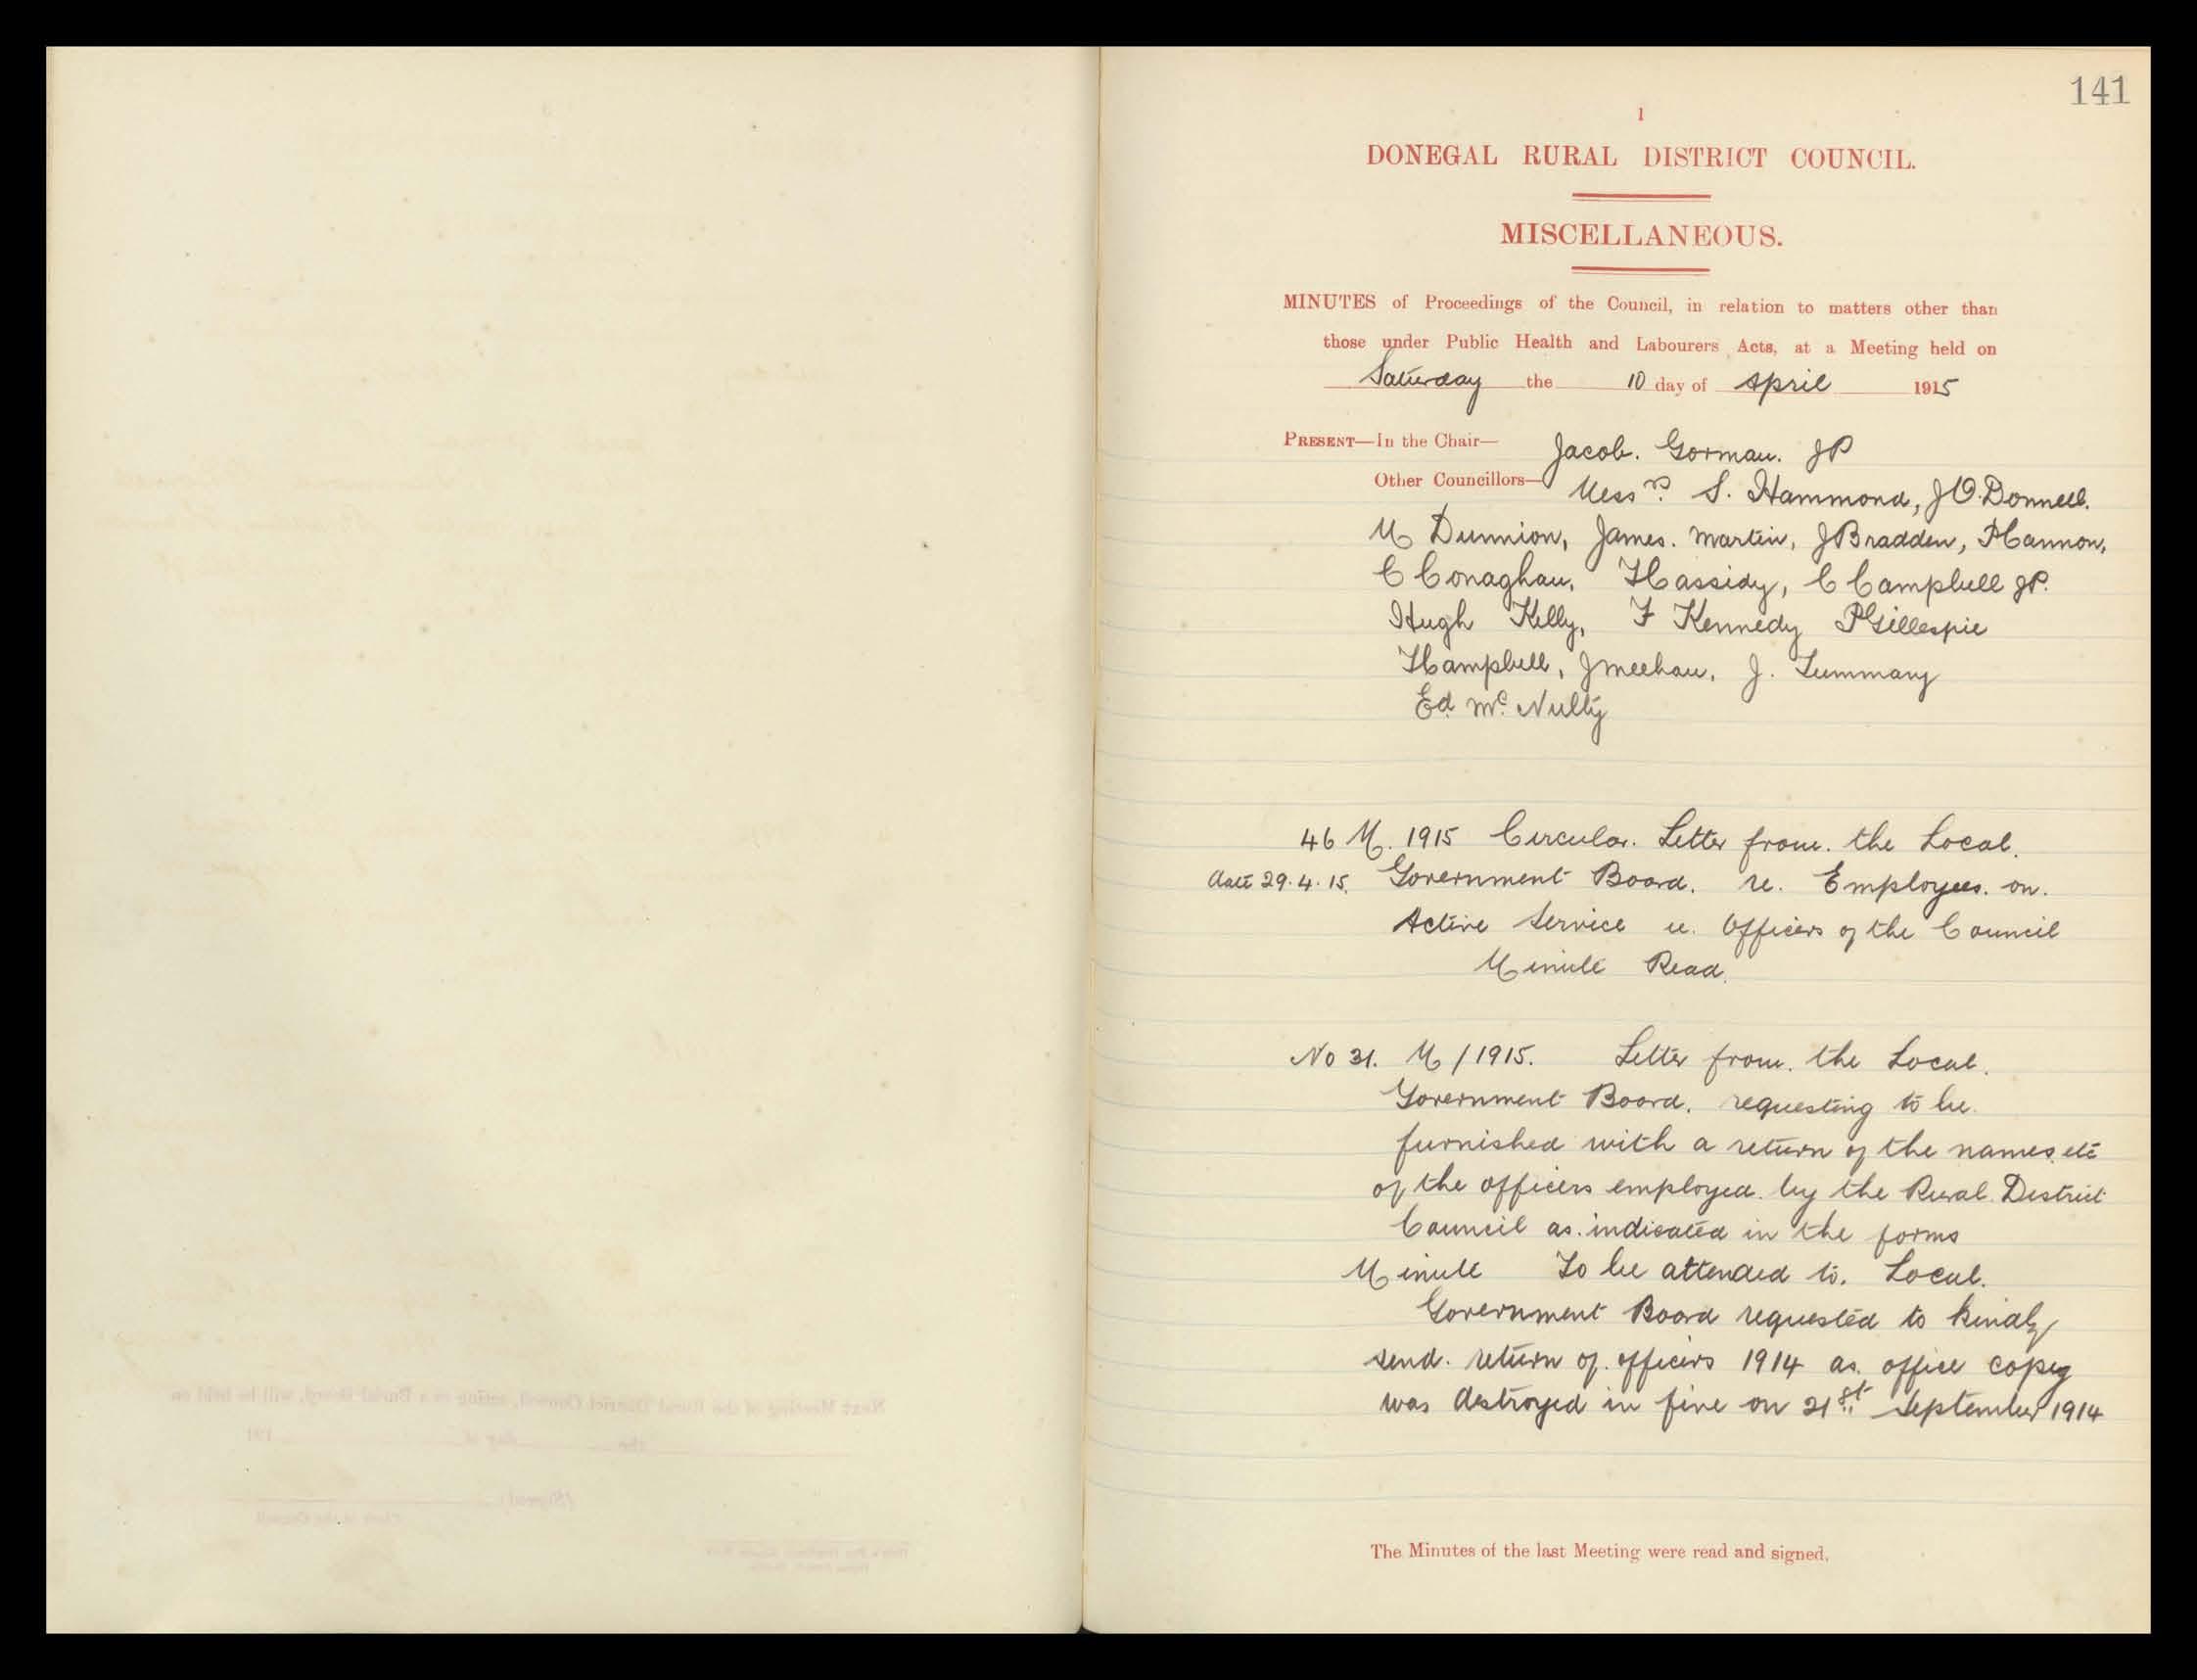 141
1
DONEGAL RURAL DISTRICT COUNCIL.
MISCELLANEOUS.
MINUTES of Proceedings of the Council, in relation to matters other than
those under Public Health and Labourers Acts, at a Meeting held on
Saturday the 10 day of April 1915
PRESENT—In the Chair— Jacob. Gorman. JP
Other Councillors— Messrs. S. Hammond, J O.Donnell.
M Dunnion, James. Martin, J Bradden, P Cannon,
C Conaghan, T Cassidy, C Campbell JP.
Hugh Kelly, F Kennedy P Gillespie
T Campbell, J Meehan, J. Tummany
Ed Mc. Nulty
46 M. 1915 Circular. Letter from. the Local.
date 29.4.15. Government Board. re. Employees. on.
Active Service ie. Officers of the Council
Minute Read.
No 31. M/1915. Letter from. the Local.
Government Board. requesting to be
furnished with a return of the names. etc
of the officers employed. by the Rural District
Council as. indicated in the forms
Minute To be attended to. Local.
Government Board requested to kindly
send. return of. officers 1914 as. office copy
was destroyed in fire on 21st September 1914
The Minutes of the last Meeting were read and signed.